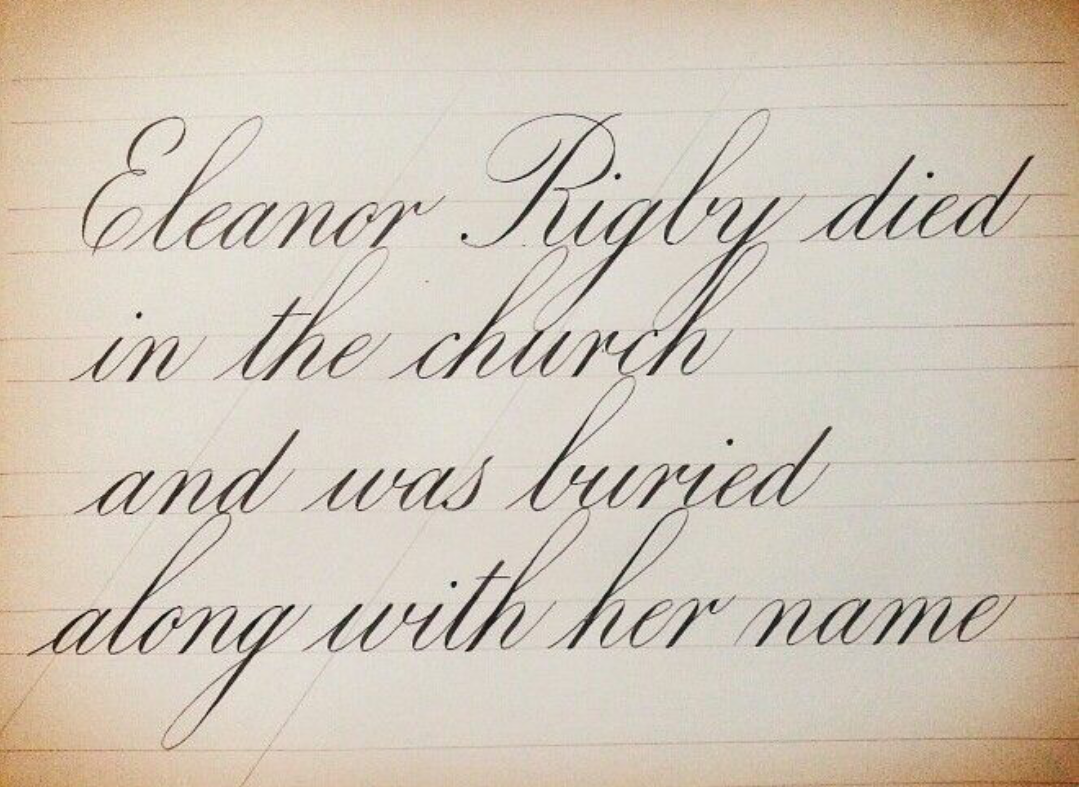 Eleanor Rigby died
in the church
and was buried
along with her name